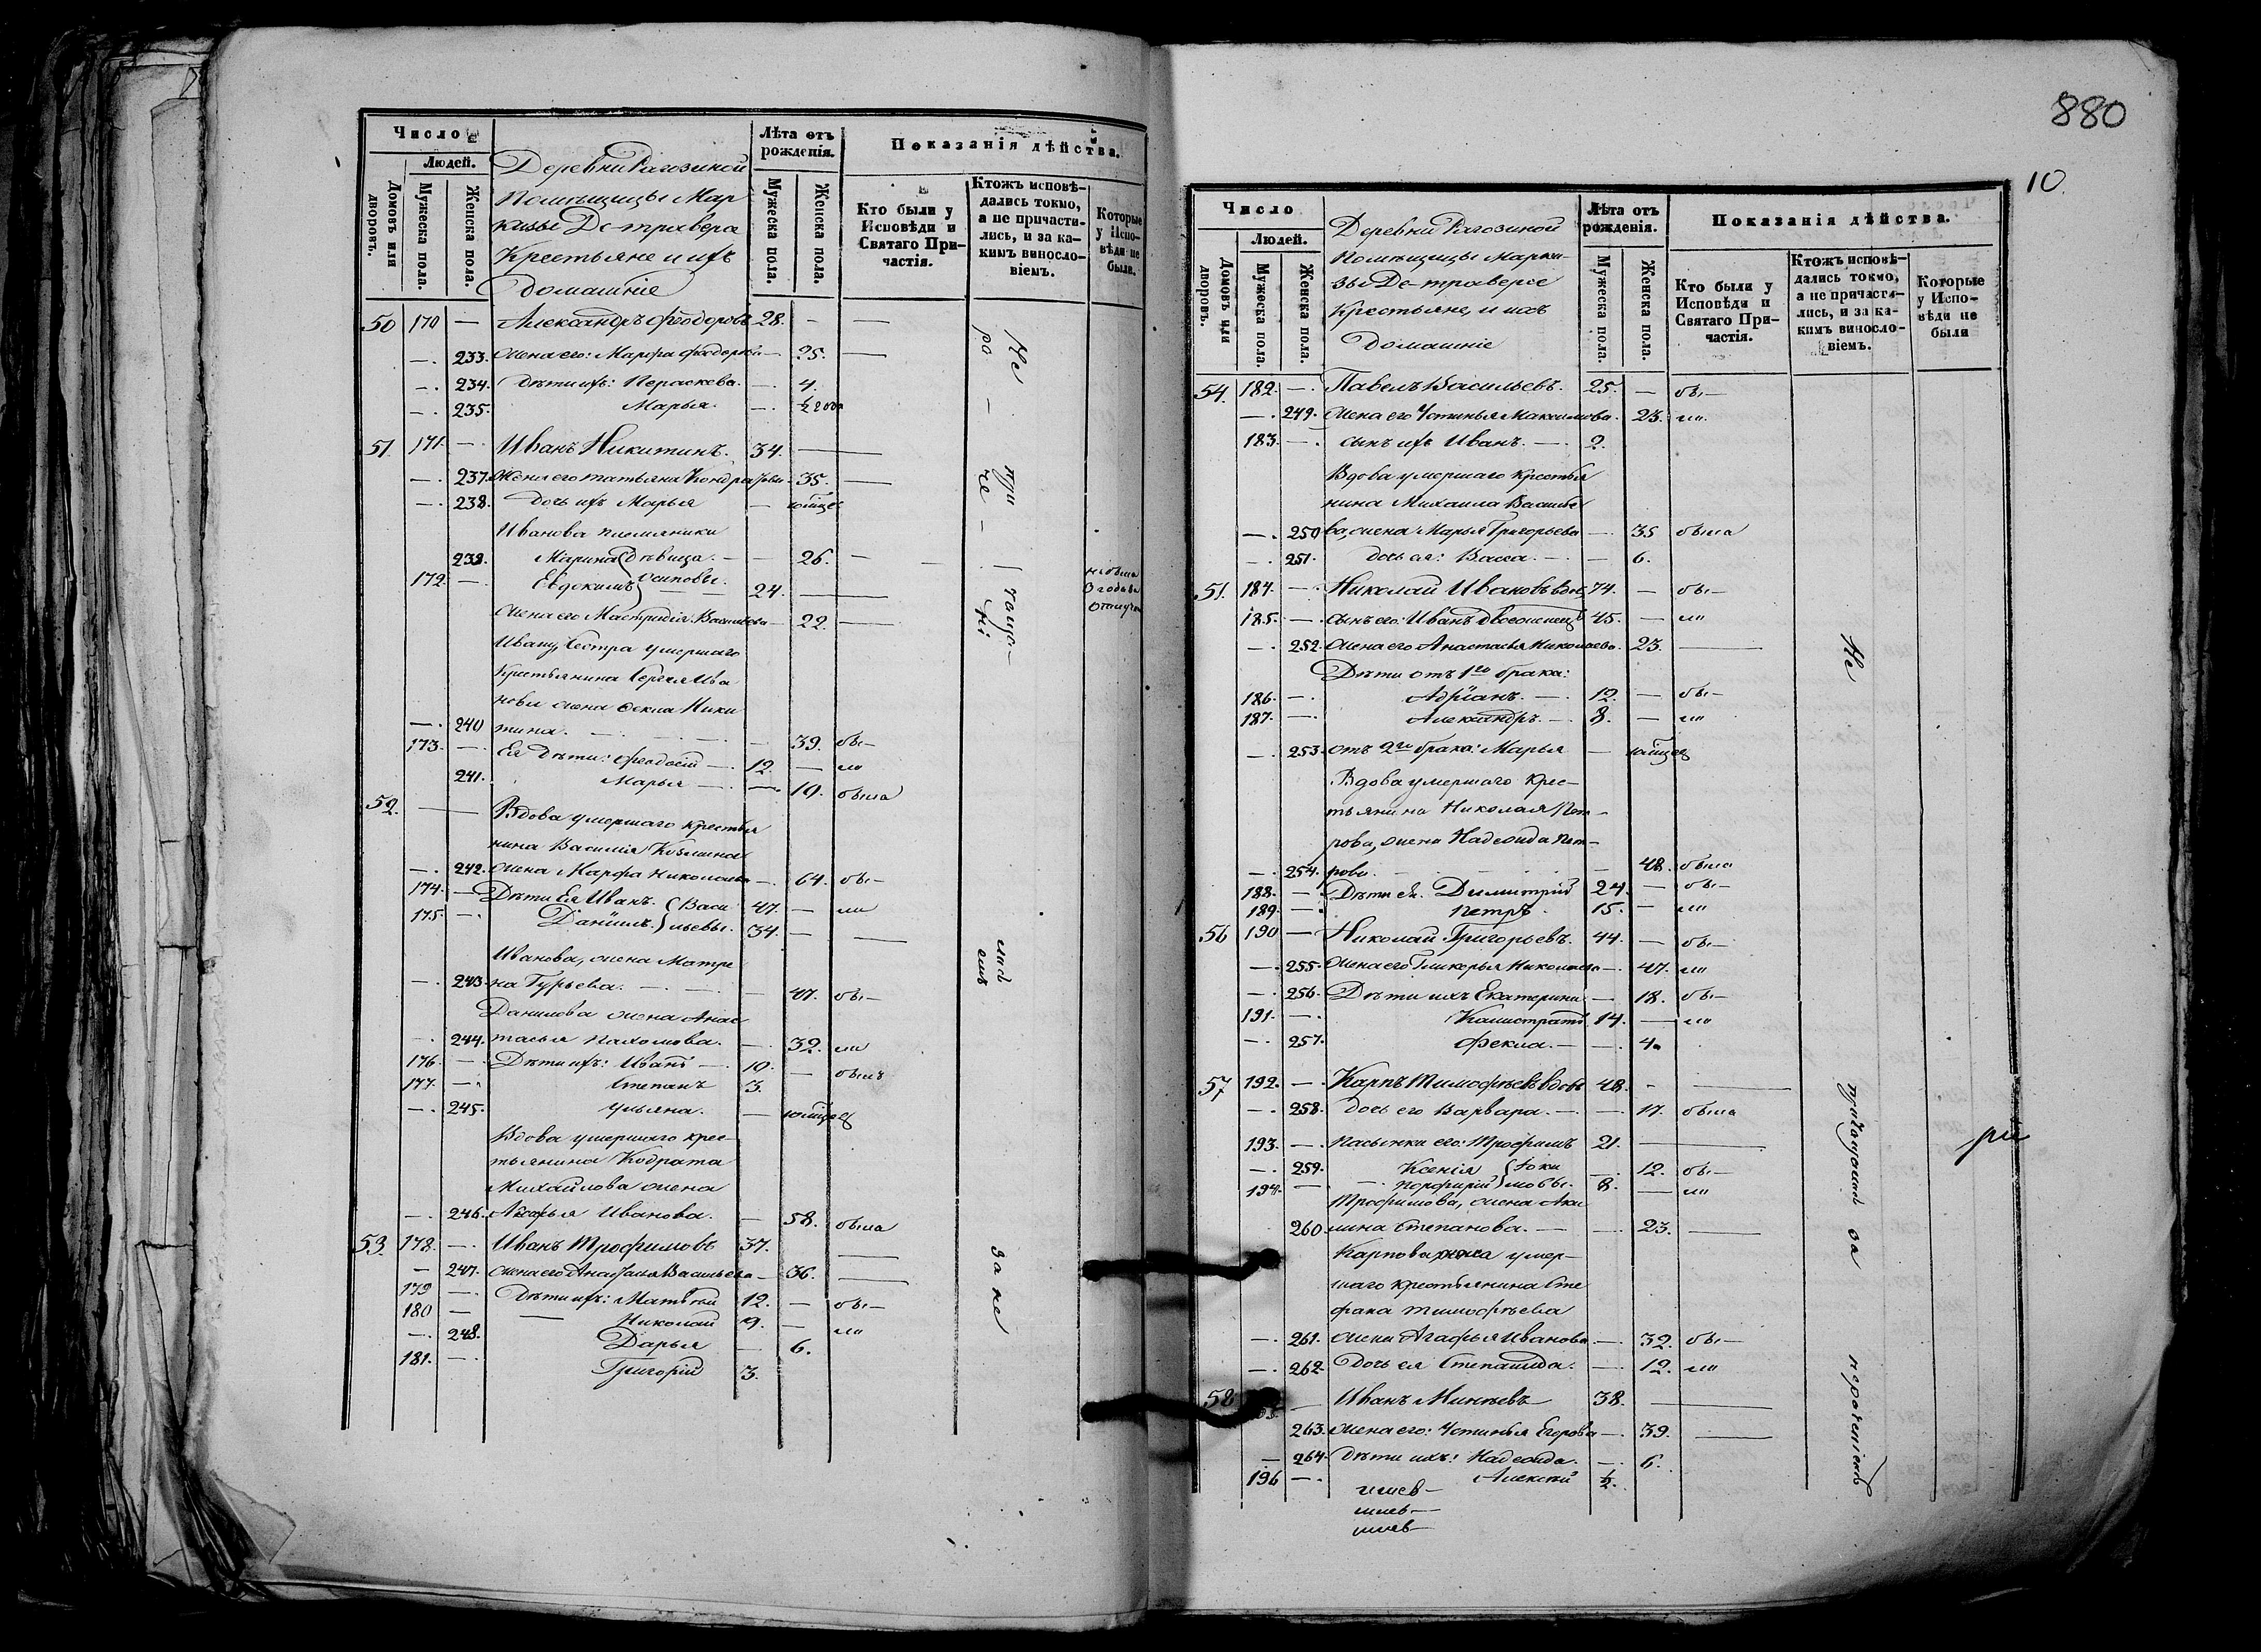 Число
Людей.
Домовъ или дворовъ.
Мужеска пола.
Женска пола.
Деревни Рагозиной
Помѣщицы Мар
кизы Де-травера
Крестьяне и ихъ
домашніе
Лѣта отъ рожденія.
Мужеска пола.
Женска пола.
Показанія дѣйства.
Кто были у Исповѣди и Святаго Причастія.
Ктожъ исповѣ-
дались токмо,
а не причасти-
лись, и за ка-
кимъ винсло-
віемъ.
Которые
у Испо-
вѣди не
были.
50 170 — Александръ Феодоровъ 28. —
— 233. жена его: Марфа Феодорова — 25.
— 234. Дѣти ихъ: Пераскева. — 4.
— 235. Марья. — ½ года
51 171. — Иванъ Никитинъ. 34. —
— 237. Жена его татьяна Кондратова — 35.
— 238. дочь ихъ Марья —
Иванова племяники
238. Марина дѣвица. — 26. —
172. — Евдокимъ Осиповы. 24.
жена его Мастридія Васильева — 22.
Ивану, Сестра умершаго
Крестьянина Сергея Ива
нова жена Фекла Ники
— 240 тина. — 39. бы—
173. — Ея дѣти: Феодосій — 12. — ли
241. Марья — 19. была
52. Вдова умершаго крестья
нина Василія Козмина
— 242. жена Марфа Николаева — 64. бы—
174. — Дѣти Ея Иванъ. Васи 47. — ли
175. — Даніилъ. льевы. 34. —
Иванова, жена Матре
— 243. на Гурьева. — 47. бы—
Данилова жена Анас
— 244. тасья Пахомова. — 32. ли
176. — Дѣти ихъ: Иванъ — 10. — былъ
177. — Степанъ 3.
— 245. Ульяна. —
Вдова умершаго крес-
тьянина Кодрата
Михайлова жена
— 246. Агафья Иванова. — 58. была
53. 178. — Иванъ Трофимовъ 37.
— 247. жена его Агафья Васильева — 36.
179 — Дѣти ихъ: Матвей 12. — бы—
180 — Николай 9. — ли
— 248. Дарья — 6.
181. — Григорій 3.
Не
при
чащо-
за не
880
10.
Число
Людей.
Домовъ или дворовъ.
Мужеска пола.
Женска пола.
Деревни Рагозиной
Помѣщицы Марки-
зы Де-траверсе
Крестьяне, и ихъ
Домашніе
Лѣта отъ рожденія.
Мужеска пола.
Женска пола.
Показанія дѣйства.
Кто были у Исповѣди и Святаго Причастія.
Ктожъ исповѣ-
дались токмо,
а не причасти-
лись, и за ка-
кимъ винсло-
віемъ.
Которые
у Испо-
вѣди не
были
54. 182. — Павелъ Васильевъ. 25. — бы—
— 249. жена его Устинья Максимова. 23. ли
183. — сынъ ихъ Иванъ. — 2.
Вдова умершаго крестья
нина Михаила Василье
— 250 ва, жена Марья Григорьева — 35 была
— 251. дочь ея: Васса. — 6.
51. 184. — Николай Ивановъ вдов 74. — бы—
185. — сынъ его: Иванъ двоеженецъ 45. — ли
— 252. жена его Анастасья Николаева. 23.
Дѣти отъ 1го брака:
186. — Адріанъ. — 12. — бы—
187. — Александръ. — 8. — ли
— 253. отъ 2го брака: Марья —
Вдова умершаго Крес-
тьянина Николая Пет-
рова, жена Надежда Пет-
— 254. рова. — 48. была
188. — Дѣти ея. Димитрій 24. — бы—
189. — Петръ. 15. — ли
56 190 — Николай Григорьевъ. 44. — бы—
— 255. жена его Гликерья Николаева — 47. ли
— 256. Дѣти ихъ Екатерина — 18. бы—
191. — Калистратъ 14. — ли
— 257. Фекла. — 4.
57 192. — Карпъ Тимофѣевъ вдовъ 48. —
— 258. дочь его Варвара. — 17. была
193. — Пасынки его: Трофимъ 21.
— 259. Ксенія Іоки — 12. бы—
194. — Порфирій мовы. 8. — ли
Трофимова, жена Аку
260 лина Степанова. — 23.
Карпова умер-
шаго крестьянина Сте
фана Тимофѣева
— 261. жена Агафья Иванова. — 32. бы—
— 262. дочь ея Степанида. — 12. ли
58 Иванъ Минѣевъ 38.
263. жена его: Устинья Егорова — 39.
— 264. дѣти ихъ: Надежда. — 6.
196 — Алексѣй ½.
Не
за